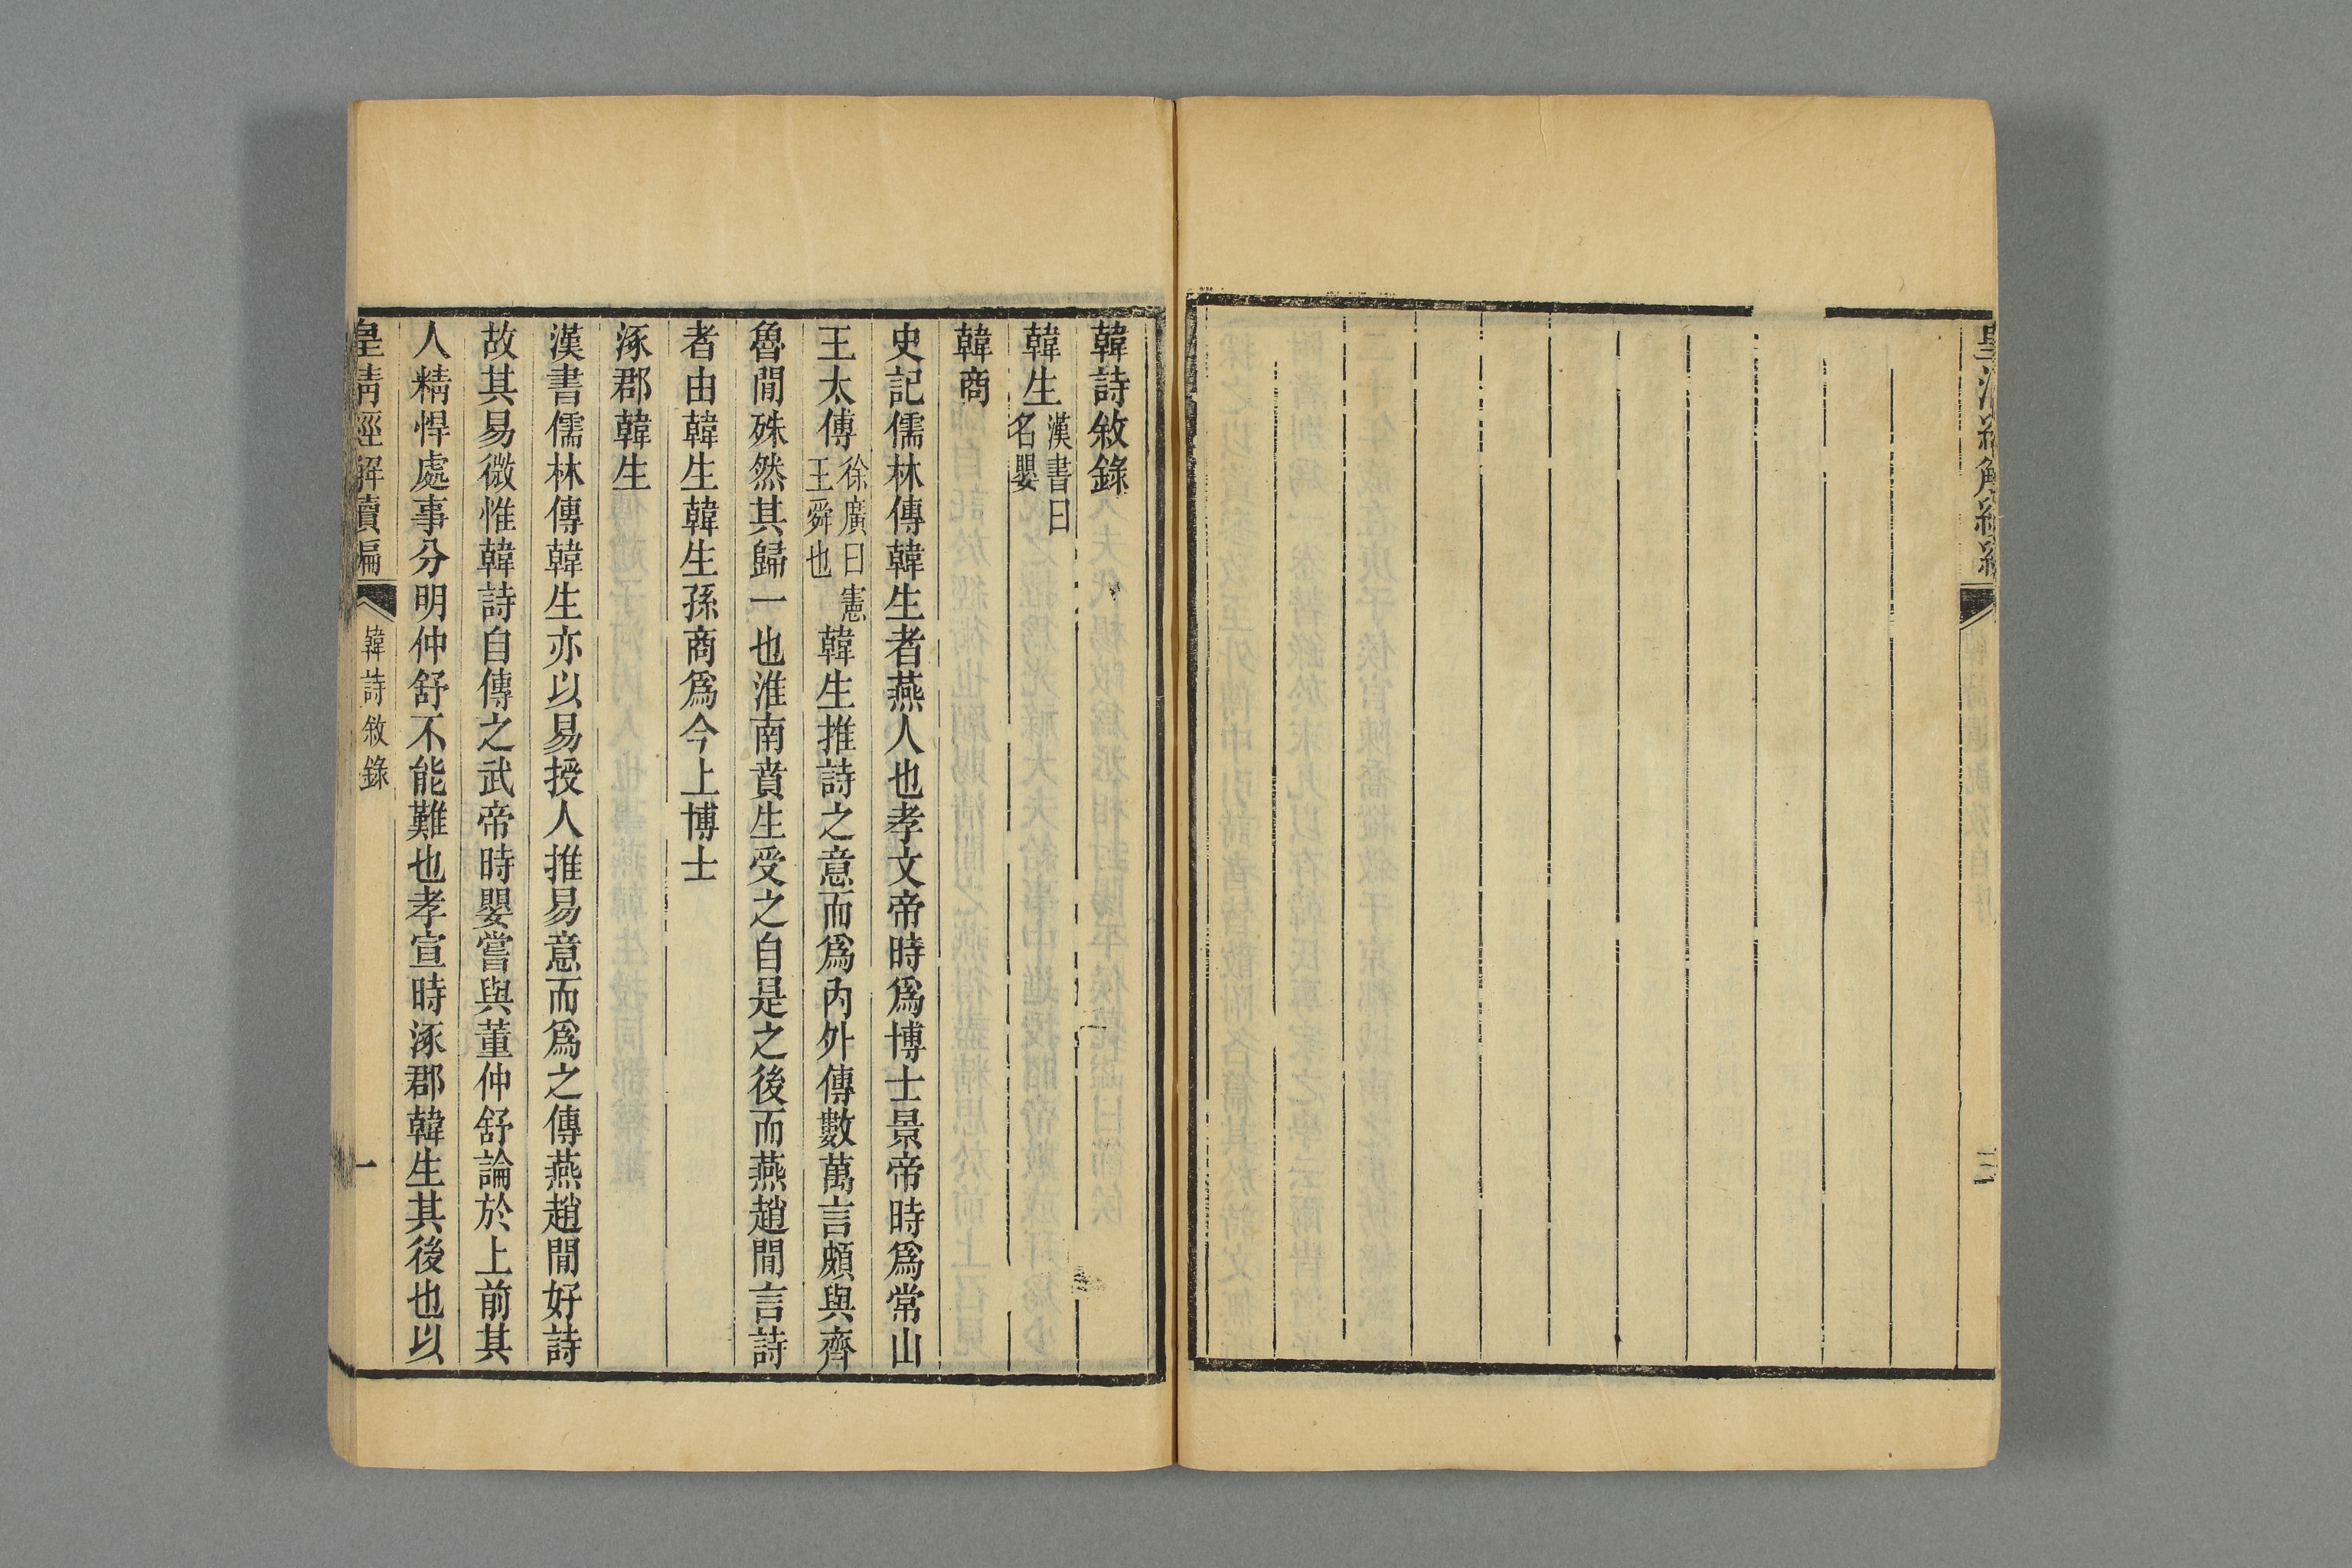 皇清經解續編
三
韓詩敘錄
韓生漢書曰名嬰
韓商
史記儒林傳韓生者燕人也孝文帝時爲博士景帝時爲常山
王太傅徐廣曰憲王舜也韓生推詩之意而爲內外傳數萬言頗與齊
魯閒殊然其歸一也淮南賁生受之自是之後而燕趙閒言詩
者由韓生韓生孫商爲今上博士
涿郡韓生
漢書儒林傳韓生亦以易授人推易意而爲之傳燕趙閒好詩
故其易微惟韓詩自傳之武帝時嬰嘗與董仲舒論於上前其
人精悍處事分明仲舒不能難也孝宣時涿郡韓生其後也以
皇清經解續編 韓詩敘錄 一